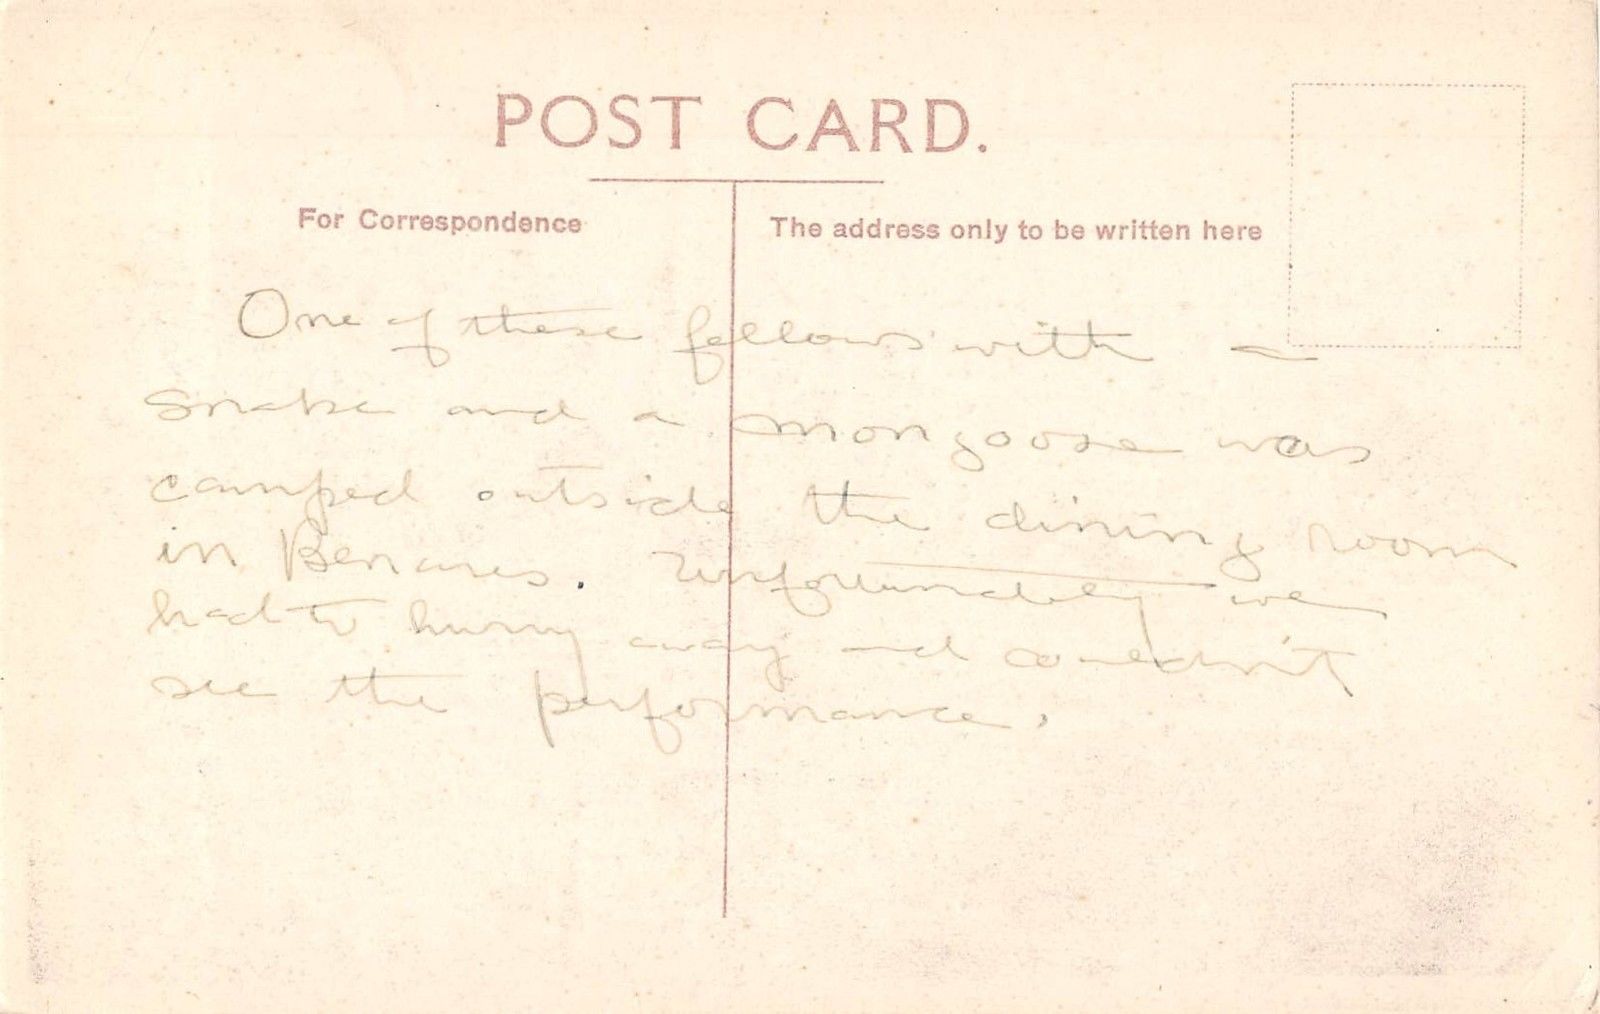 POST CARD.
For Correspondence
The address only to be written here
One of these fellows with a
snake and a mongoose was
camped outside the dining room
in Benares. Unfortunately we
had to hurry away and couldn't
see the performance.